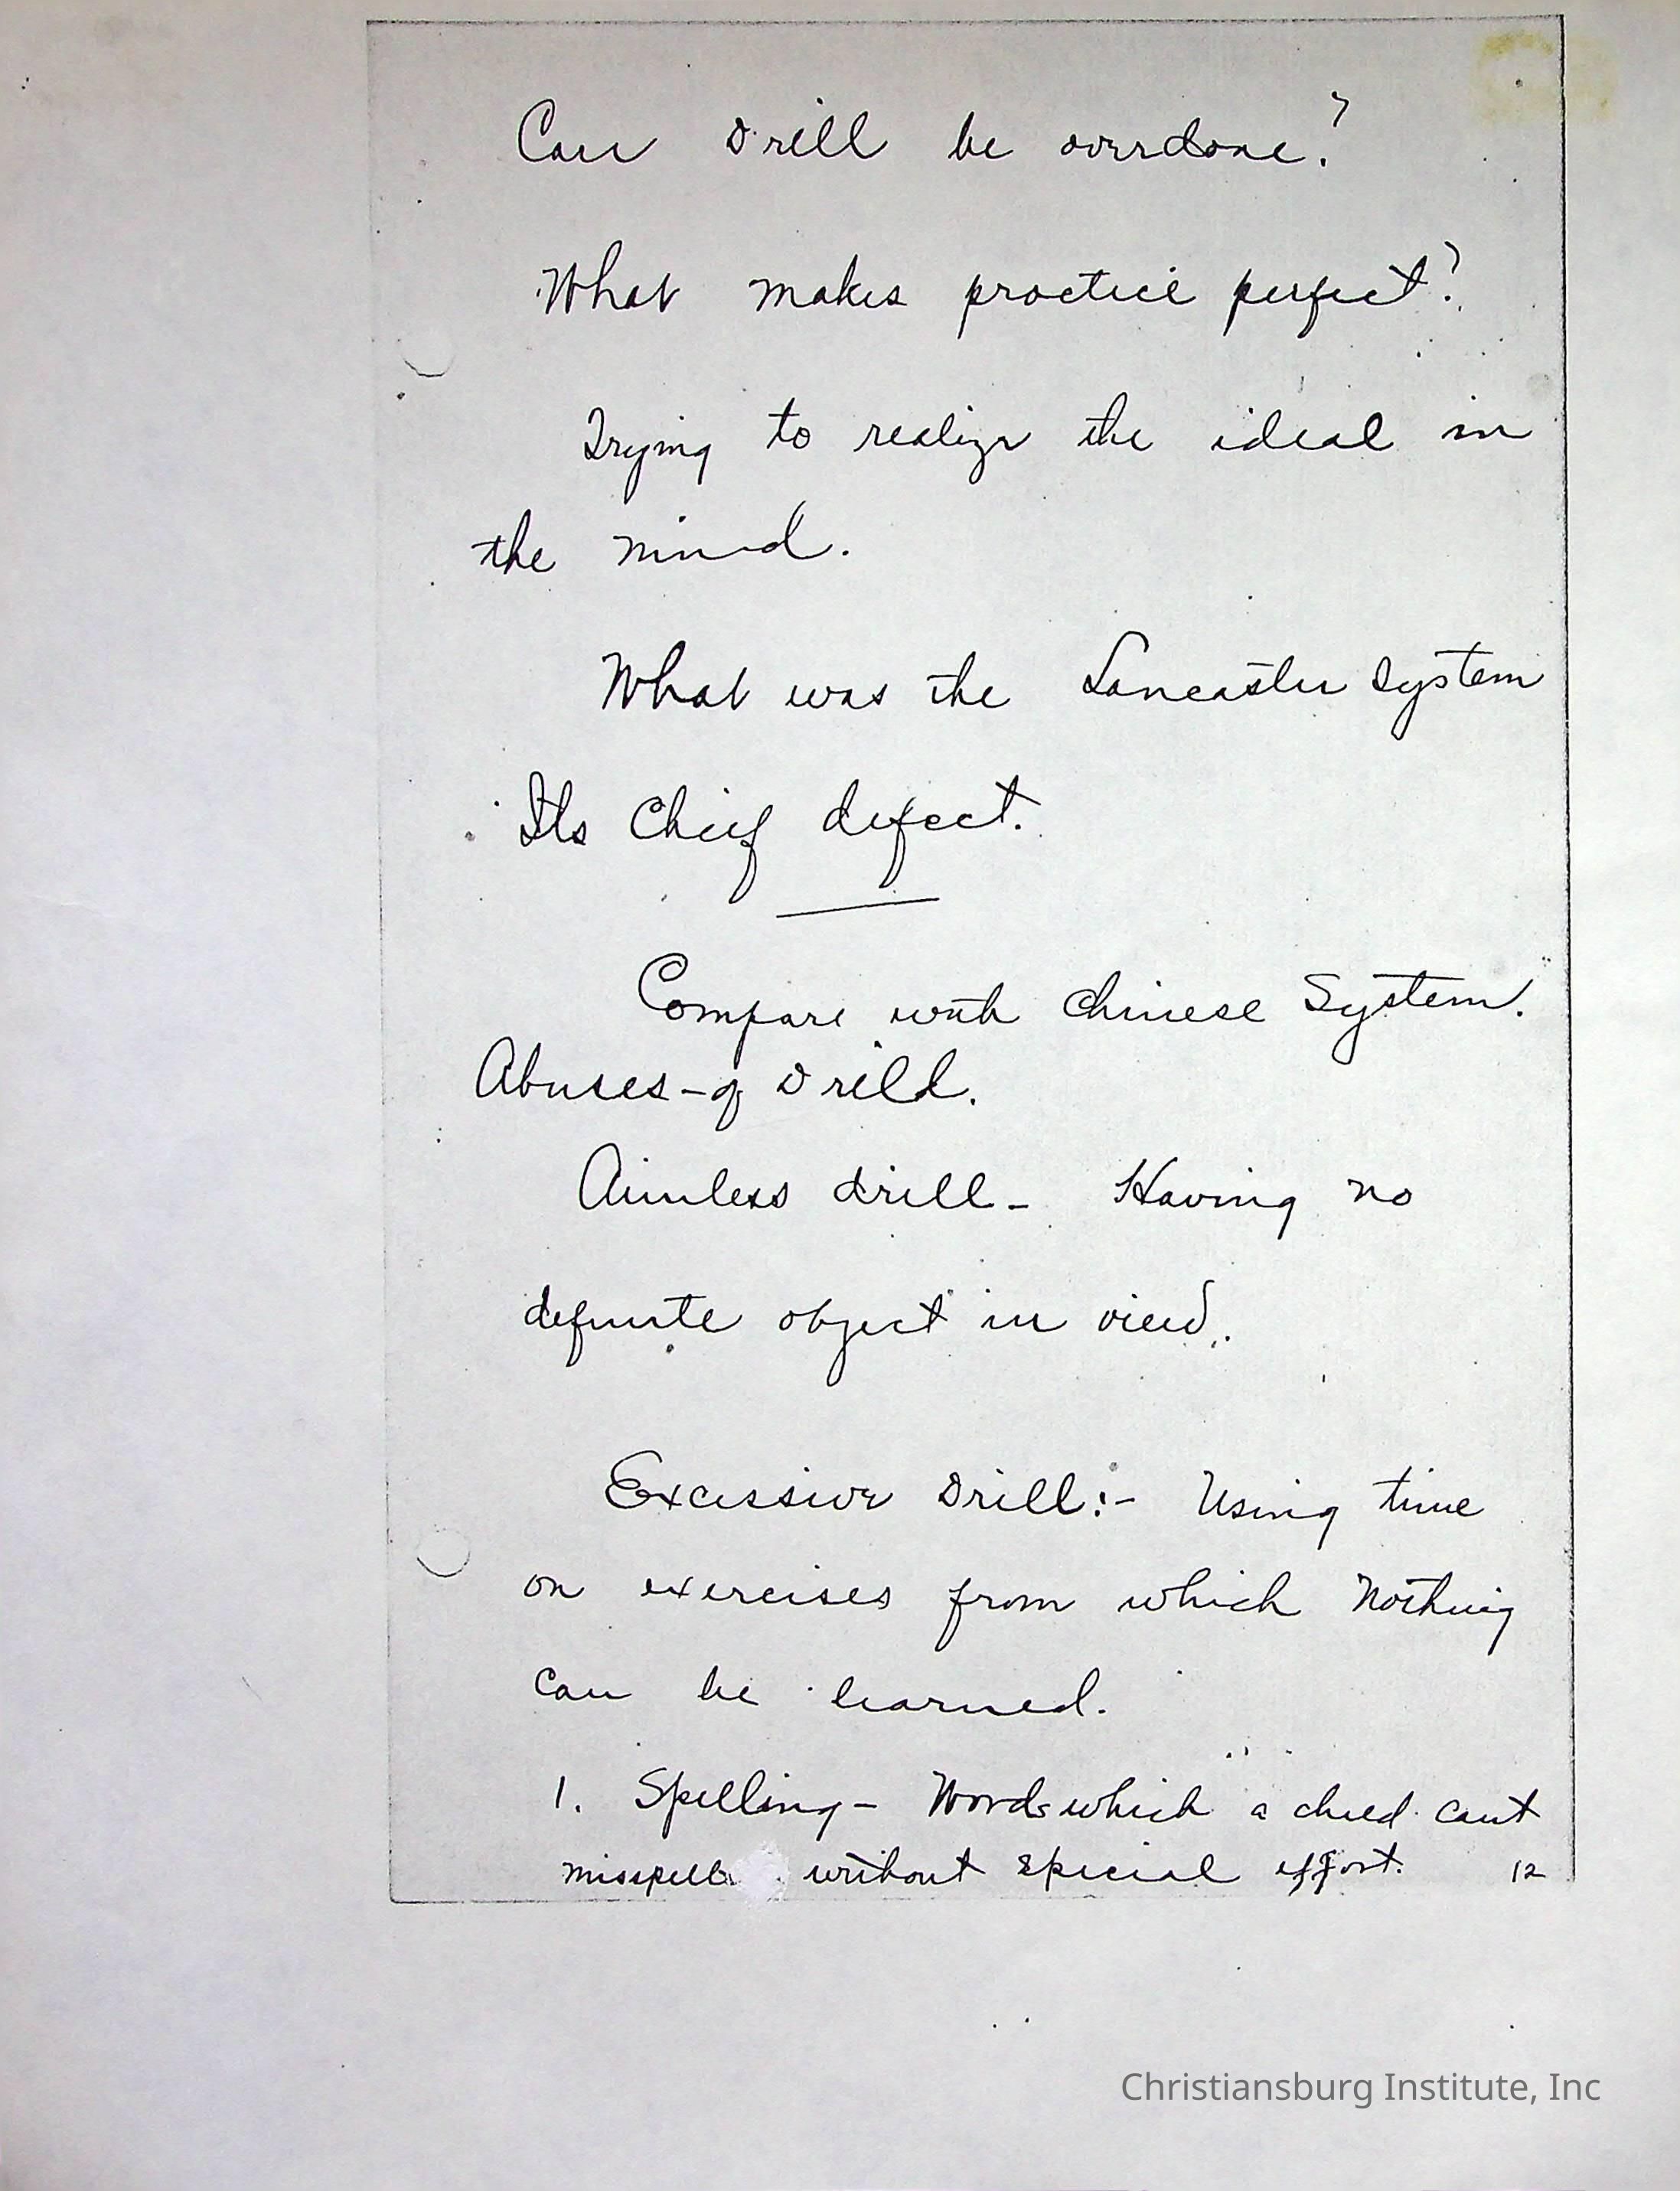 Can Drill be overdone?
What makes practice perfect?
Trying to realize the ideal in
the mind.
What was the Lancaster System
Its Chief defect.
Compare with Chinese System.
Abuses-of Drill.
Aimless drill- Having no
definite object in view.
Excessive Drill:- Using time
on exercises from which nothing
can be learned.
1. Spelling- Words which a child cant
misspell without special effort. 12
Christiansburg Institute, Inc